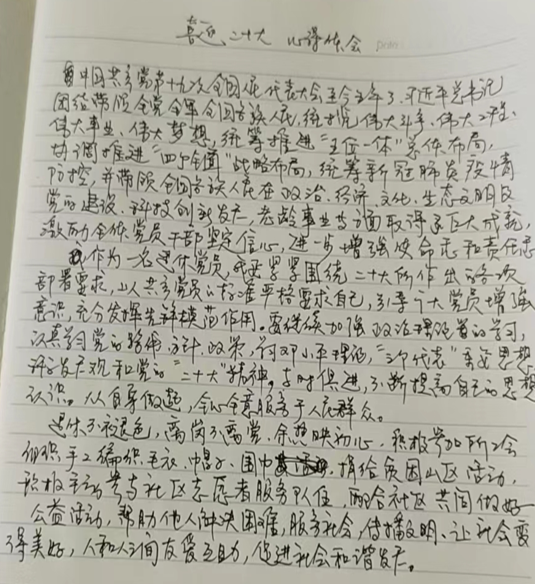 喜迎二十大 心得体会
自中国共产党第十九次全国人民代表大会至今五年了,习近平总书记
团结带领全党全军全国各族人民,统揽伟大斗争、伟大工程、
伟大事业、伟大梦想,统筹推进"五位一体"总体布局,
协调推进"四个全面"战略布局,统筹新冠肺炎疫情
防控,并带领全国各族人民在政治、经济、文化、生态文明及
党的建设、科技创新发展、老龄事业等方面取得了巨大成就,
激励全体党员干部坚定信心,进一步增强使命感和责任感
我作为一名退休党员,我要紧紧围绕二十大所作出的各项
部署要求,以共产党员的标准严格要求自己,引导广大党员增强
意识,充分发挥先锋模范作用。要继续加强政治理论的学习,
认真学习党的路线、方针、政策,和邓小平理论,"三个代表"重要思想
科学发展观和党的"二十大"精神。与时俱进,不断提高自己的思想
认识。从自身做起,全心全意服务于人民群众。
退休不褪色,离岗不离党,余热映初心,积极参加所工会
组织手工编织毛衣、帽子、围巾,捐给贫困山区活动,
积极主动参与社区志愿者服务队伍,配合社区共同做好
公益活动,帮助他人解决困难,服务社会,传播文明、让社会变
得美好,人和人之间友爱互助,促进社会和谐发展。